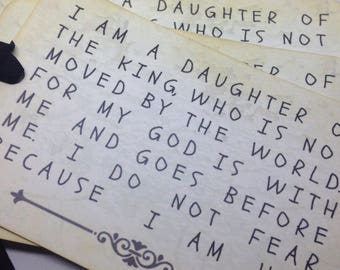 A DAUGHTER OF
WHO IS NOT
OF
I AM A DAUGHTER O
THE KING, WHO IS NO
MOVED BY THE WORLD.
FOR MY GOD IS WITH
ME AND GOES BEFORE
ME. I DO NOT FEAR
BECAUSE I AM